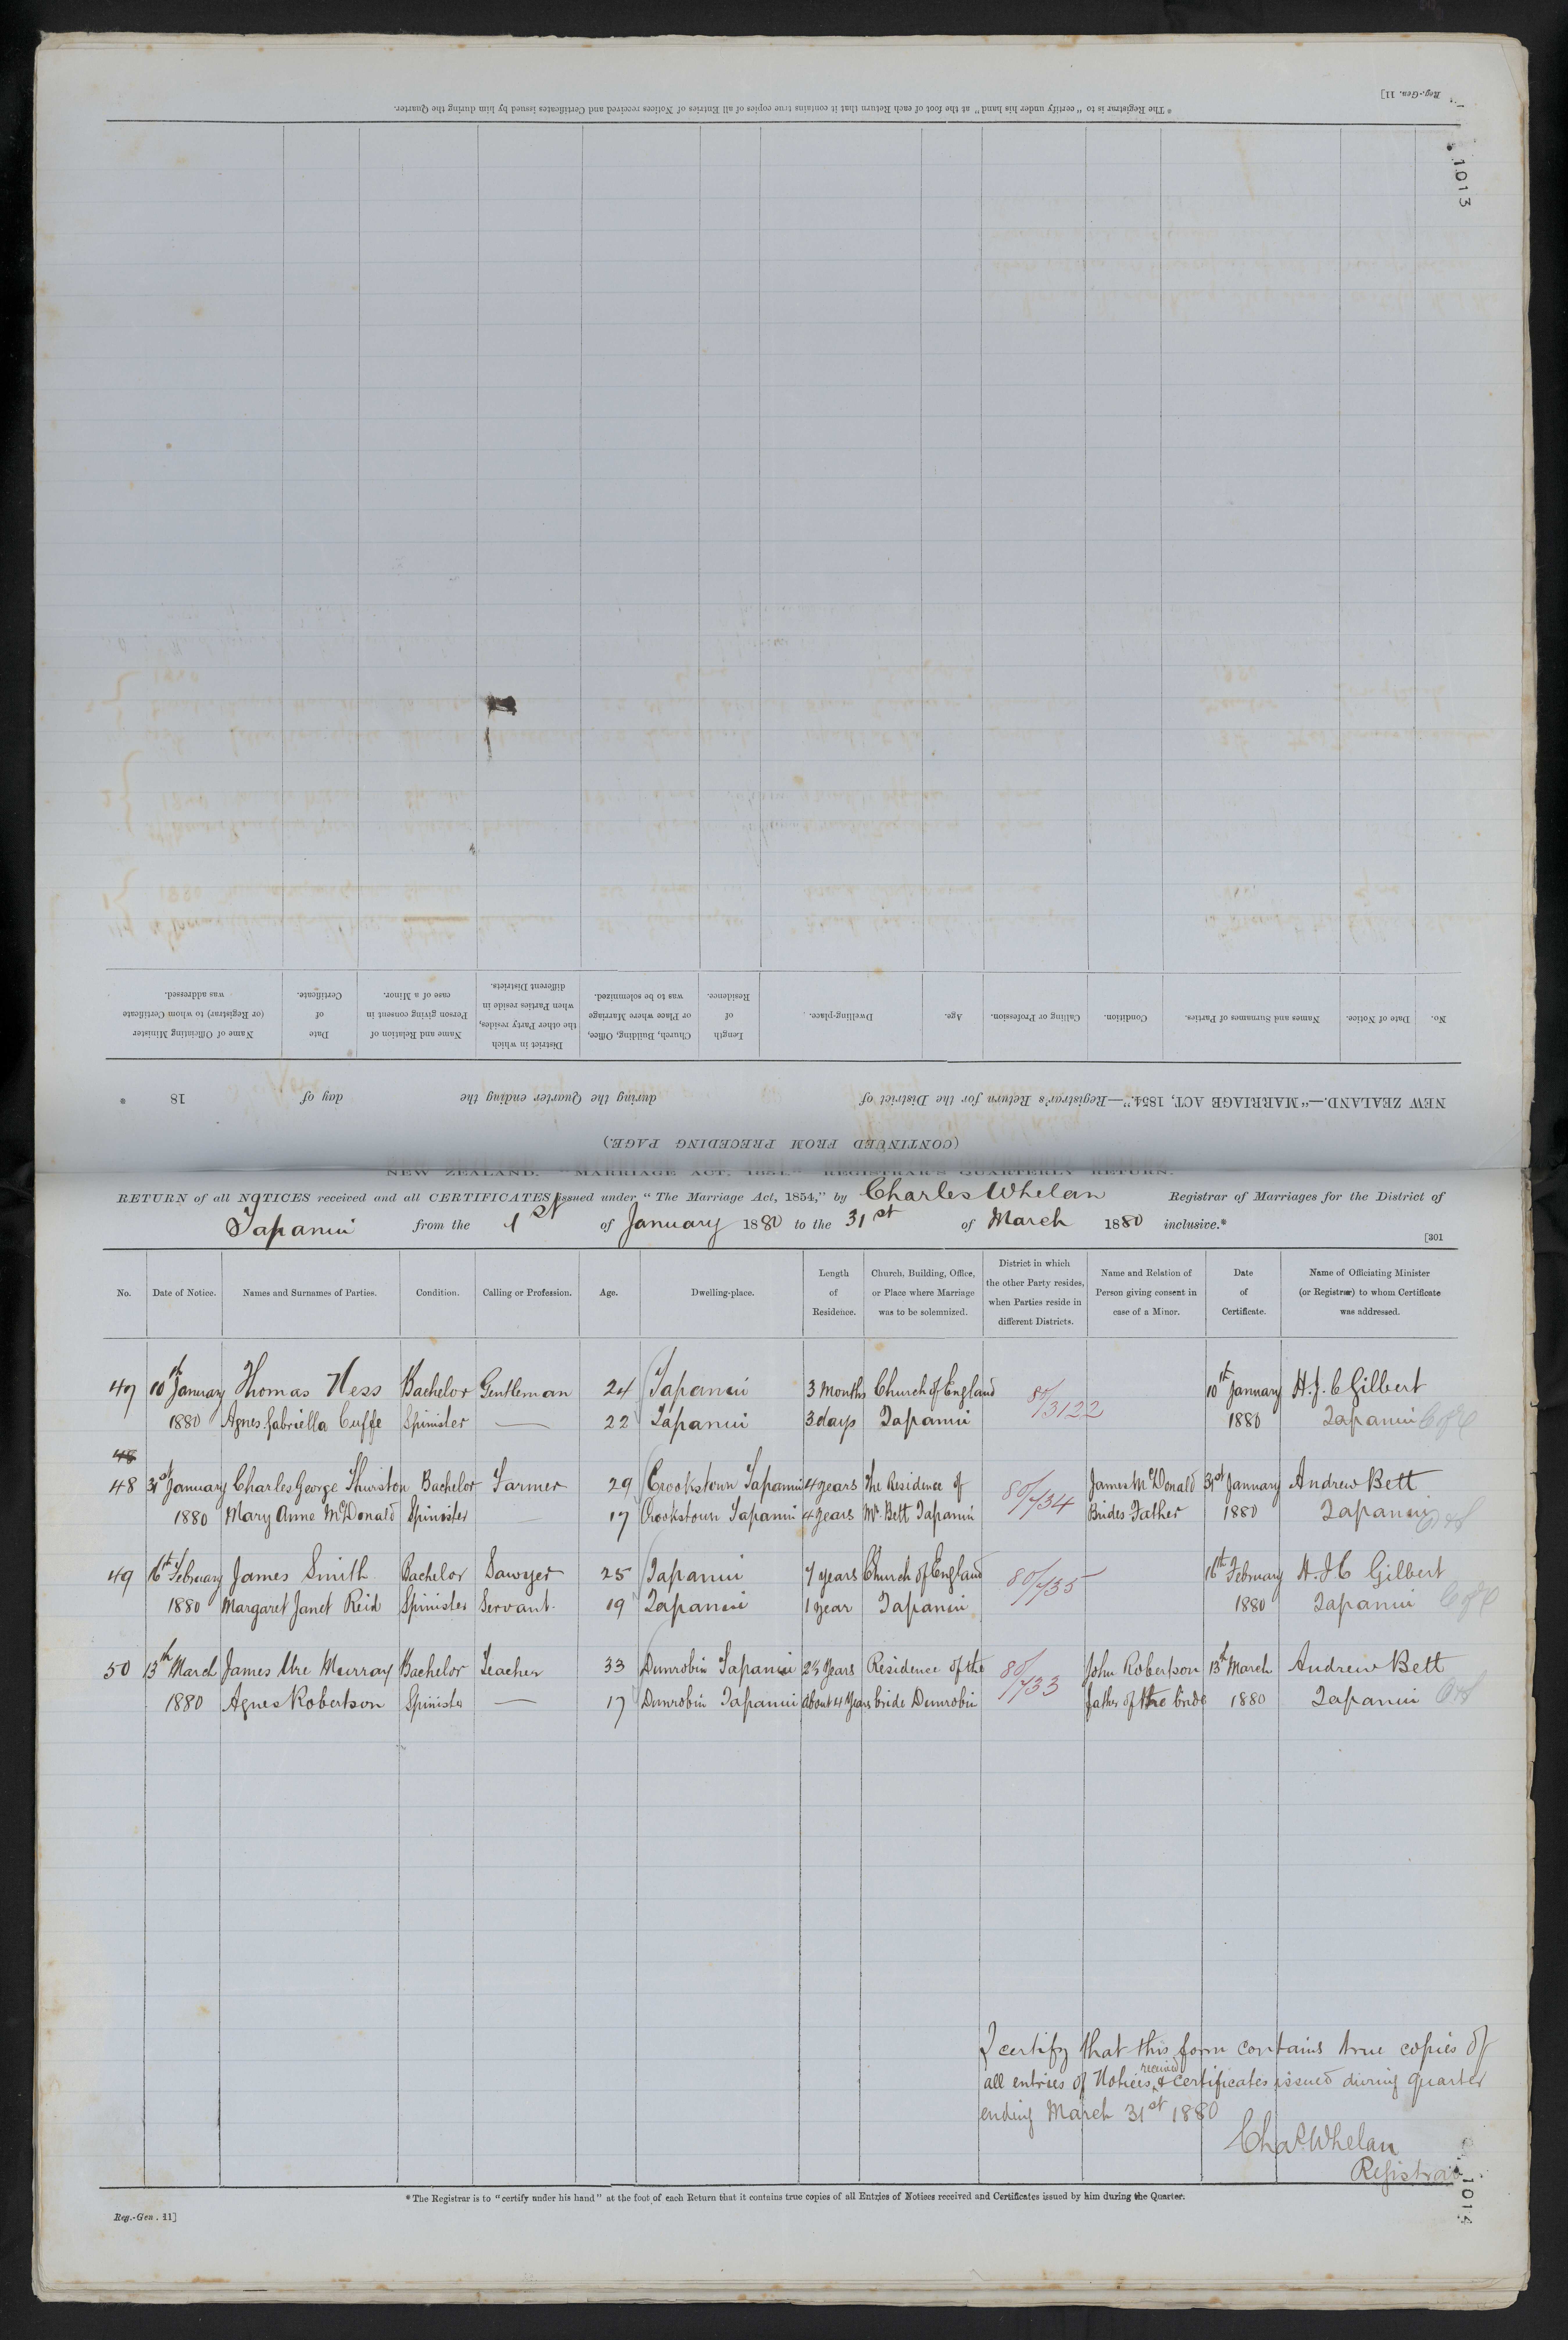 * The Registrar is to "certify under his hand" at the foot of each Return that it contains true copies of all Entries of Notices received and Certificates issued by him during the Quarter.
Reg.-Gen. 11]
1013
No. Date of Notice. Names and Surnames of Parties. Condition. Calling or Profession. Age. Dwelling-place. Length of Residence. Church, Building, Office, or Place where Marriage was to be solemnized. District in which the other Party resides, when Parties reside in different Districts. Name and Relation of Person giving consent in case of a Minor. Date of Certificate. Name of Officiating Minister (or Registrar) to whom Certificate was addressed.
NEW ZEALAND.—"MARRIAGE ACT, 1854."—Registrar's Return for the District of during the Quarter ending the day of 18
(CONTINUED FROM PRECEDING PAGE.)
NEW ZEALAND. "MARRIAGE ACT, 1854." REGISTRAR'S QUARTERLY RETURN.
RETURN of all NOTICES received and all CERTIFICATES issued under "The Marriage Act, 1854," by Charles Whelan Registrar of Marriages for the District of
Tapanui from the 1st of January 1880 to the 31st of March 1880 inclusive.*
[301
No. Date of Notice. Names and Surnames of Parties. Condition. Calling or Profession. Age. Dwelling-place. Length of Residence. Church, Building, Office, or Place where Marriage was to be solemnized. District in which the other Party resides, when Parties reside in different Districts. Name and Relation of Person giving consent in case of a Minor. Date of Certificate. Name of Officiating Minister (or Registrar) to whom Certificate was addressed.
47 10th January Thomas Hess Bachelor Gentleman 24 Tapanui 3 Months Church of England 80/3122 10th January H. J. C Gilbert
1880 Agnes Gabriella Cuffe Spinster — 22 Tapanui 3 days Tapanui 1880 Tapanui C of E
48
48 31st January Charles George Thurston Bachelor Farmer 29 Crookstown Tapanui 4 years The Residence of 80/734 James McDonald 31st January Andrew Bett
1880 Mary Anne McDonald Spinster — 17 Crookstown Tapanui 4 years Mr. Bett Tapanui Brides Father 1880 Tapanui
49 16th February James Smith Bachelor Sawyer 25 Tapanui 7 years Church of England 80/735 16th February H. J C Gilbert
1880 Margaret Janet Reid Spinster Servant. 19 Tapanui 1 year Tapanui 1880 Tapanui C of E
50 13th March James Ure Murray Bachelor Teacher 33 Dunrobin Tapanui 2½ Years Residence of the 80/733 John Robertson 13th March Andrew Bett
1880 Agnes Robertson Spinster — 17 Dunrobin Tapanui about 4 Years bride Dunrobin father of the bride 1880 Tapanui
I certify that this form contains true copies of
all entries of Notices received & certificates issued during quarter
ending March 31st 1880
Chas Whelan
Registrar
1014
* The Registrar is to "certify under his hand" at the foot of each Return that it contains true copies of all Entries of Notices received and Certificates issued by him during the Quarter.
Reg.-Gen. 11]